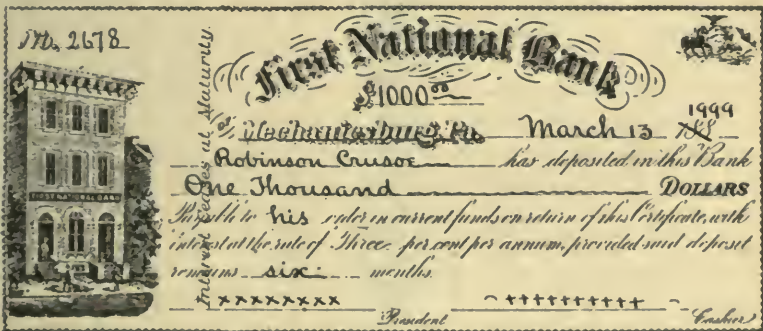 No. 2678
First National Bank
$1000.00
of Mechanicsburg, Pa. March 13 1999 188
Robinson Crusoe has deposited in this Bank
One Thousand DOLLARS
Payable to his order in current funds on return of this Certificate, with
interest at the rate of Three per cent per annum, provided said deposit
remains six months.
xxxxxxxx ++++++++++
President Cashier
Interest Ceases at Maturity.
FIRST NATIONAL BANK